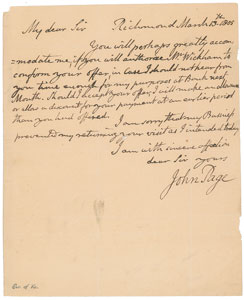 My dear Sir Richmond March 13th 1805
You will perhaps greatly accom
=modate me, if you will authorise Mr. Wickham to
conform your offer, in case I should not hear from
you time enough for my purposes at Bank next
Month. Should I accept your offer, I will make an allowance
or allow a discount for your payment at an earlier period
than you had offered. I am sorry that my Business
prevented my returning your visit as I intended today
I am with sincere affection
dear Sir yours
John Page